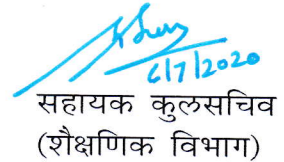 6/7/2020
सहायक कुलसचिव
(शैक्षणिक विभाग)